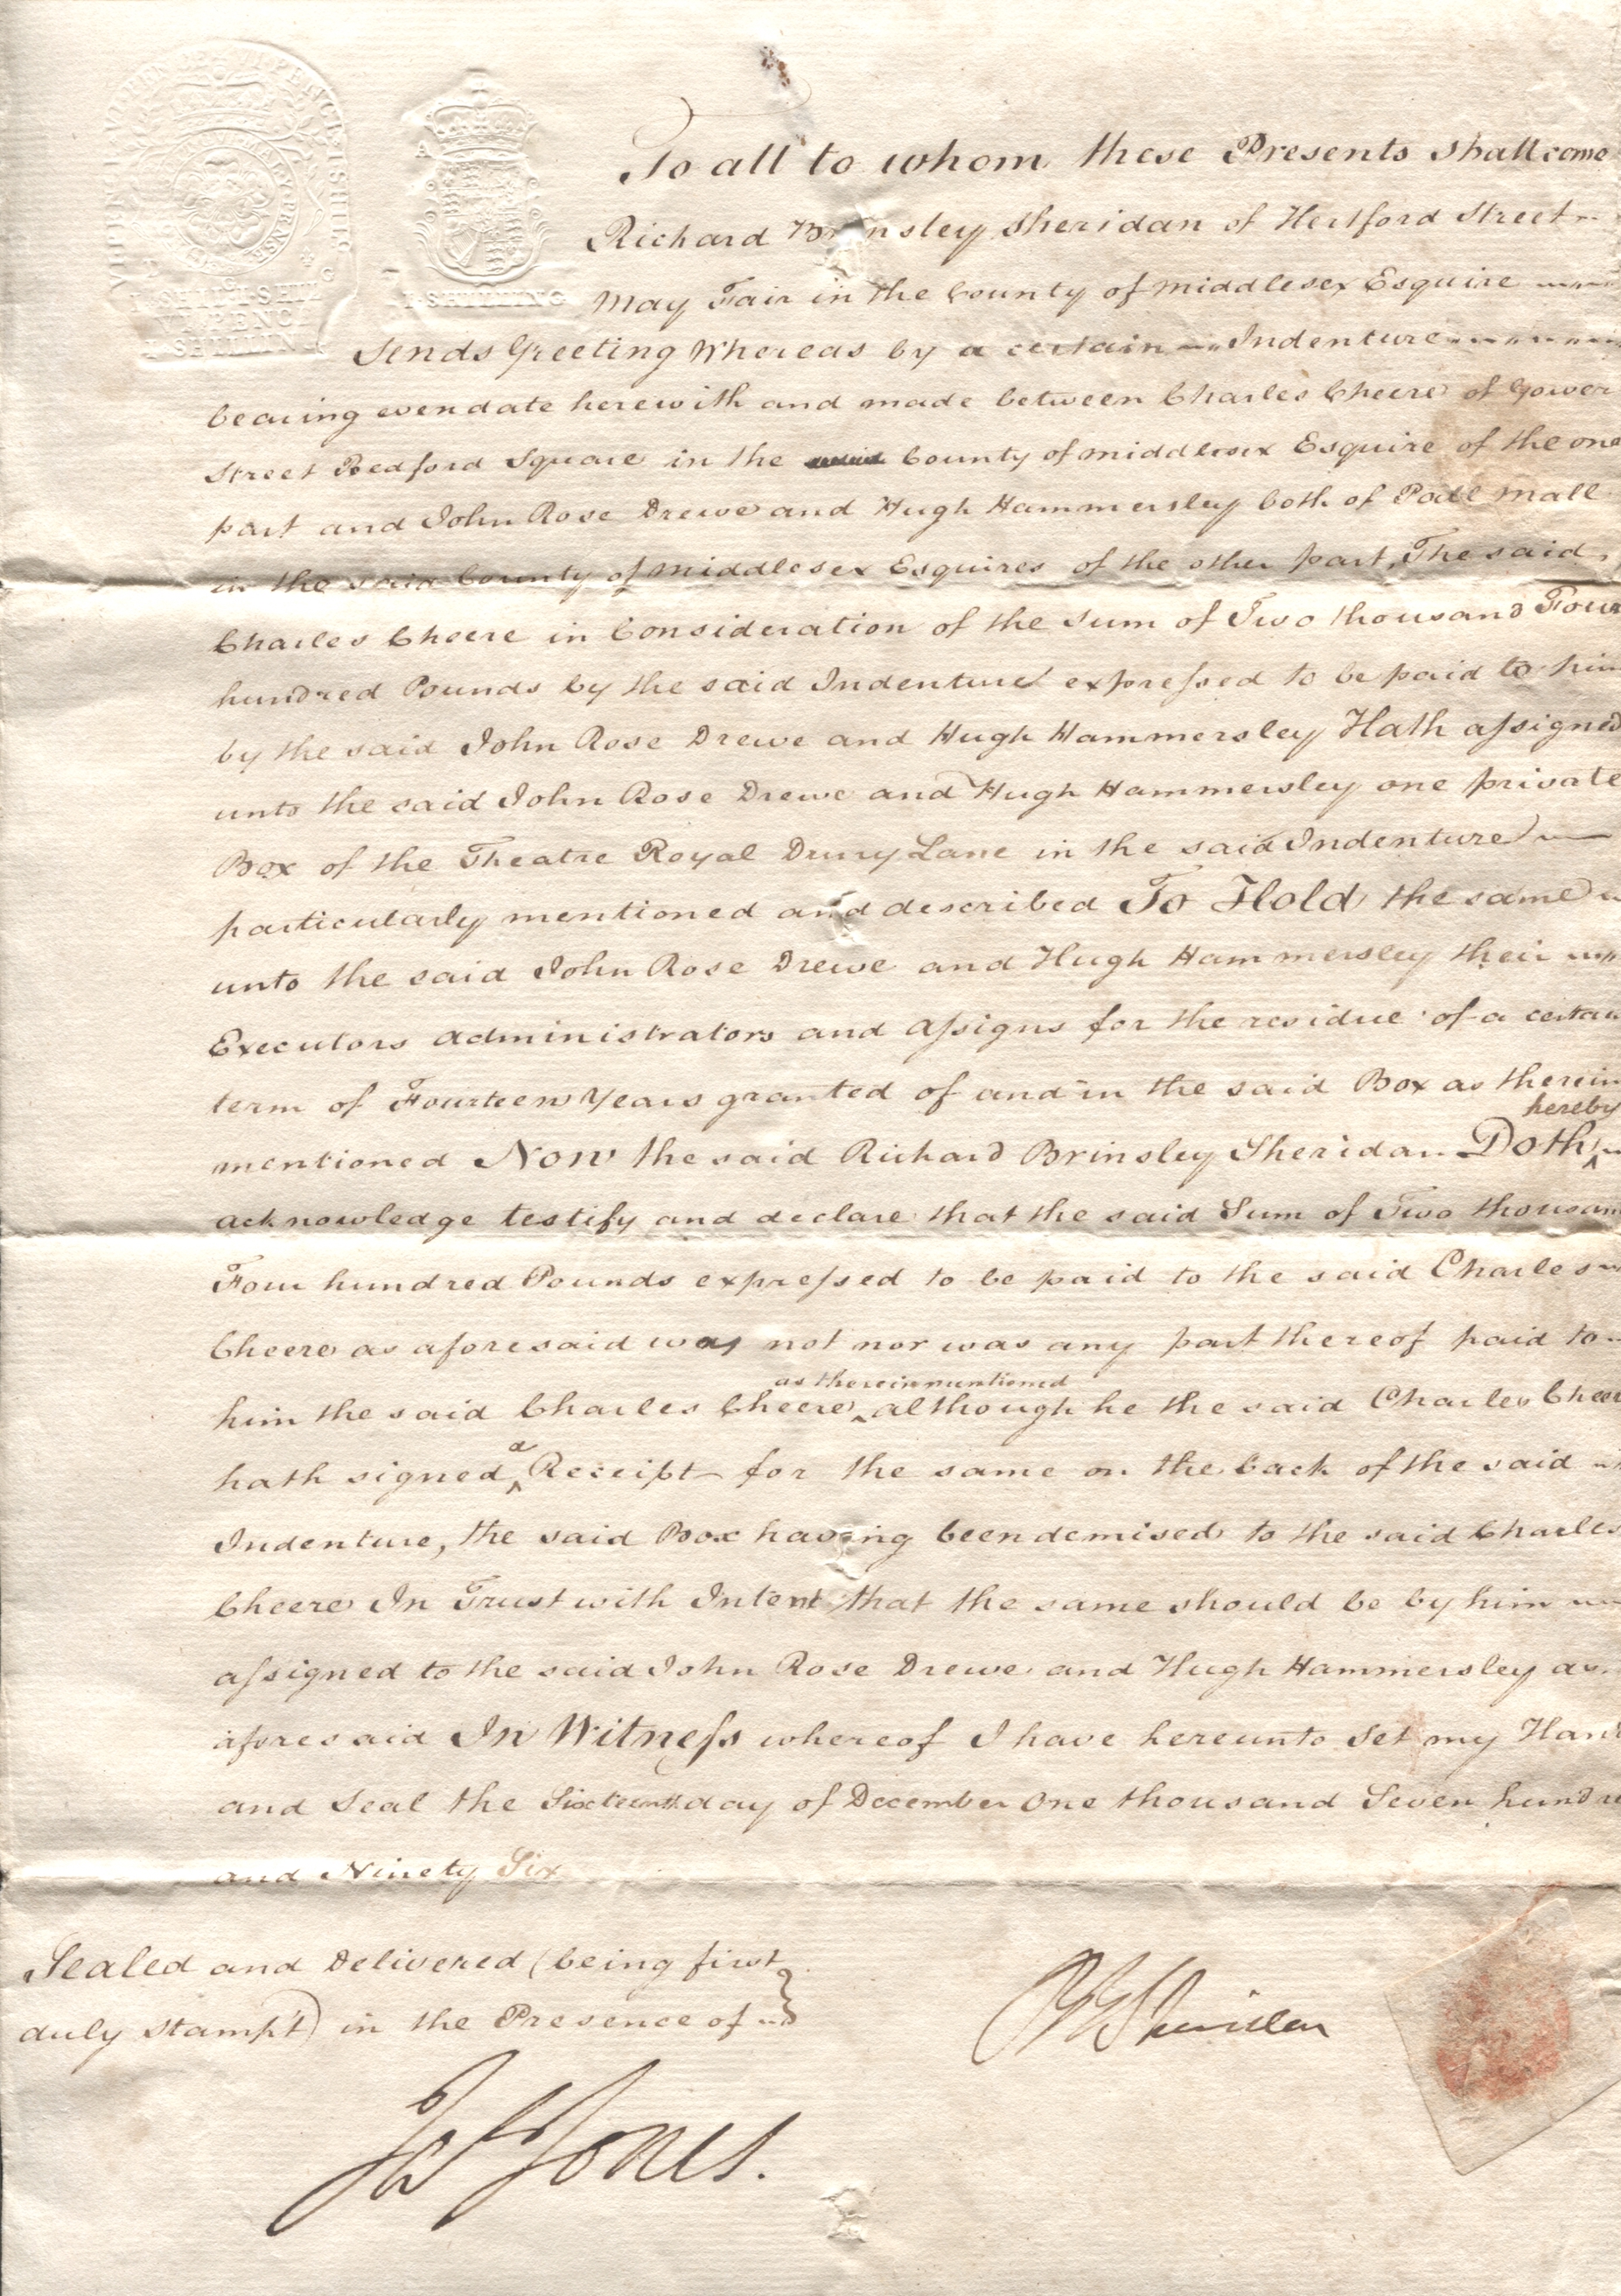 VI PENCE
I SHILLING
VI PENCE
I SHILLING
A
I · SHILLING
To all to whom these Presents shall come
Richard Brinsley Sheridan of Hertford Street
May Fair in the County of Middlesex Esquire
Sends Greeting Whereas by a certain Indenture
bearing even date herewith and made between Charles Cheere of Gower
Street Bedford Square in the County of Middlesex Esquire of the one
part and John Rose Drewe and Hugh Hammersley both of Pall Mall
in the said County of Middlesex Esquires of the other part, The said
Charles Cheere in Consideration of the Sum of Two thousand Four
hundred Pounds by the said Indenture expreſsed to be paid to him
by the said John Rose Drewe and Hugh Hammersley Hath aſsigned
unto the said John Rose Drewe and Hugh Hammersley one private
Box of the Theatre Royal Drury Lane in the said Indenture
particularly mentioned and described To Hold the same
unto the said John Rose Drewe and Hugh Hammersley their
Executors administrators and aſsigns for the residue of a certain
term of Fourteen Years granted of and in the said Box as therein
hereby
mentioned Now the said Richard Brinsley Sheridan Doth ^
acknowledge testify and declare that the said Sum of Two thousand
Four hundred Pounds expreſsed to be paid to the said Charles
Cheere as aforesaid was not nor was any part thereof paid to
as therein mentioned
him the said Charles Cheere ^ although he the said Charles Cheere
a
hath signed ^ Receipt for the same on the back of the said
Indenture, the said Box having been demised to the said Charles
Cheere In Trust with Intent that the same should be by him
aſsigned to the said John Rose Drewe and Hugh Hammersley as
aforesaid In Witneſs whereof I have hereunto set my Hand
and Seal the Sixteenth day of December One thousand Seven hundred
and Ninety Six
Sealed and Delivered (being first
duly stampt) in the Presence of
R B Sheridan
Jones.